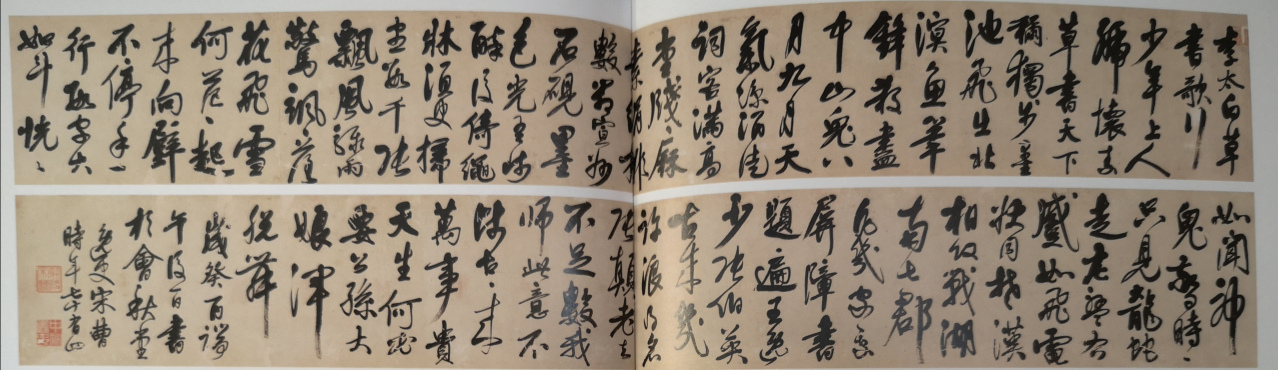 李太白草
書歌行
少年上人
號懷素
草書天下
稱獨步墨
池飛出北
溟魚筆
鋒殺盡
中山兔八
月九月天
氣涼酒徒
詞客滿高
堂牋麻
素絹排
數箱宣州
石硯墨
色光吾師
醉後倚繩
牀須臾掃
盡數千張
飄風驟雨
驚颯颯落
花飛雪
何茫茫起
來向壁
不停手一
行數字大
如斗怳怳
如聞神
鬼驚時時
只見龍蛇
走左盤右
蹙如飛電
狀同楚漢
相攻戰湖
南七郡
凡幾家家
屏障書
題遍王逸
少張伯英
古來幾
許浪得名
張顛老去
不足數我
師此意不
師古古來
萬事貴
天生何必
要公孫大
娘渾
脫舞
歲癸酉端
午後一日書
於會秋堂
逸叟宋曹
時年七十有四